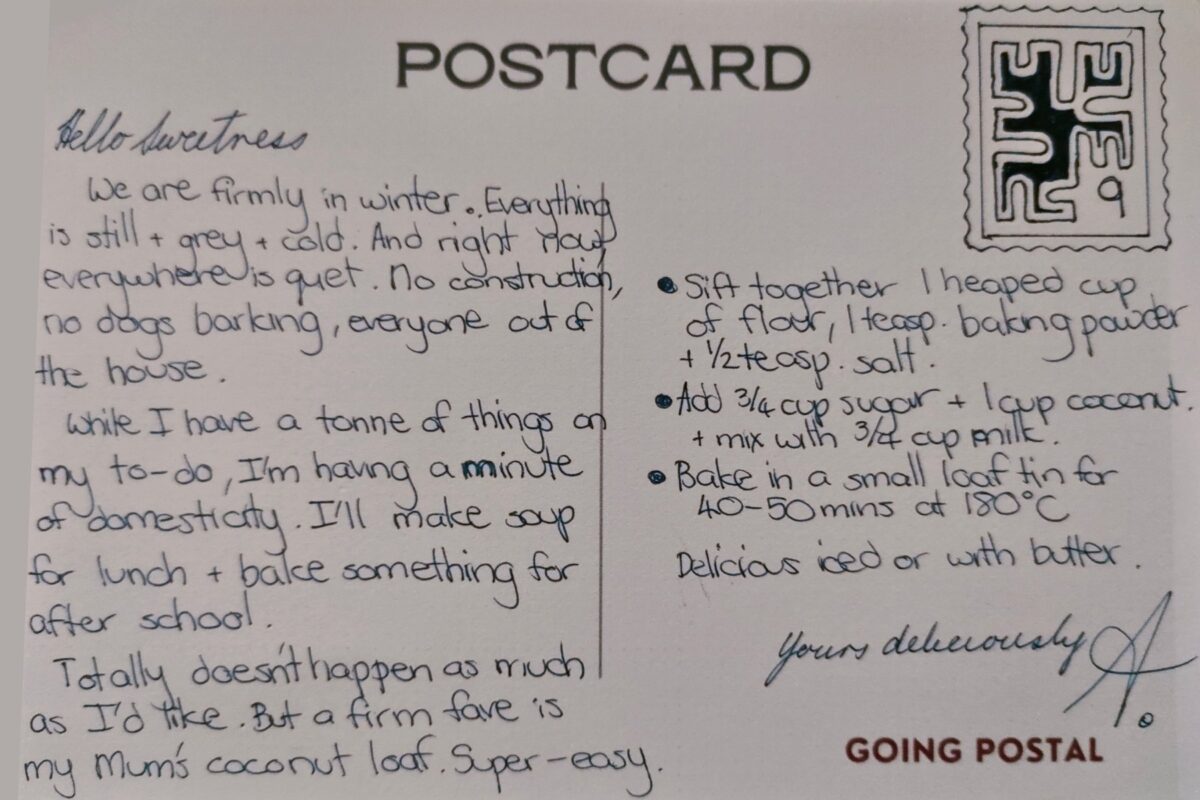 POSTCARD
Hello Sweetness
We are firmly in winter. Everything
is still + grey + cold. And right now
everywhere is quiet. No construction,
no dogs barking, everyone out of
the house.
While I have a tonne of things on
my to-do, I'm having a minute
of domesticity. I'll make soup
for lunch + bake something for
after school.
Totally doesn't happen as much
as I'd like. But a firm fave is
my Mum's coconut loaf. Super-easy.
9
• Sift together 1 heaped cup
of flour, 1 teasp. baking powder
+ 1/2 teasp. salt.
• Add 3/4 cup sugar + 1 cup coconut.
+ mix with 3/4 cup milk.
• Bake in a small loaf tin for
40-50 mins at 180°C
Delicious iced or with butter.
Yours deliciously A.
GOING POSTAL